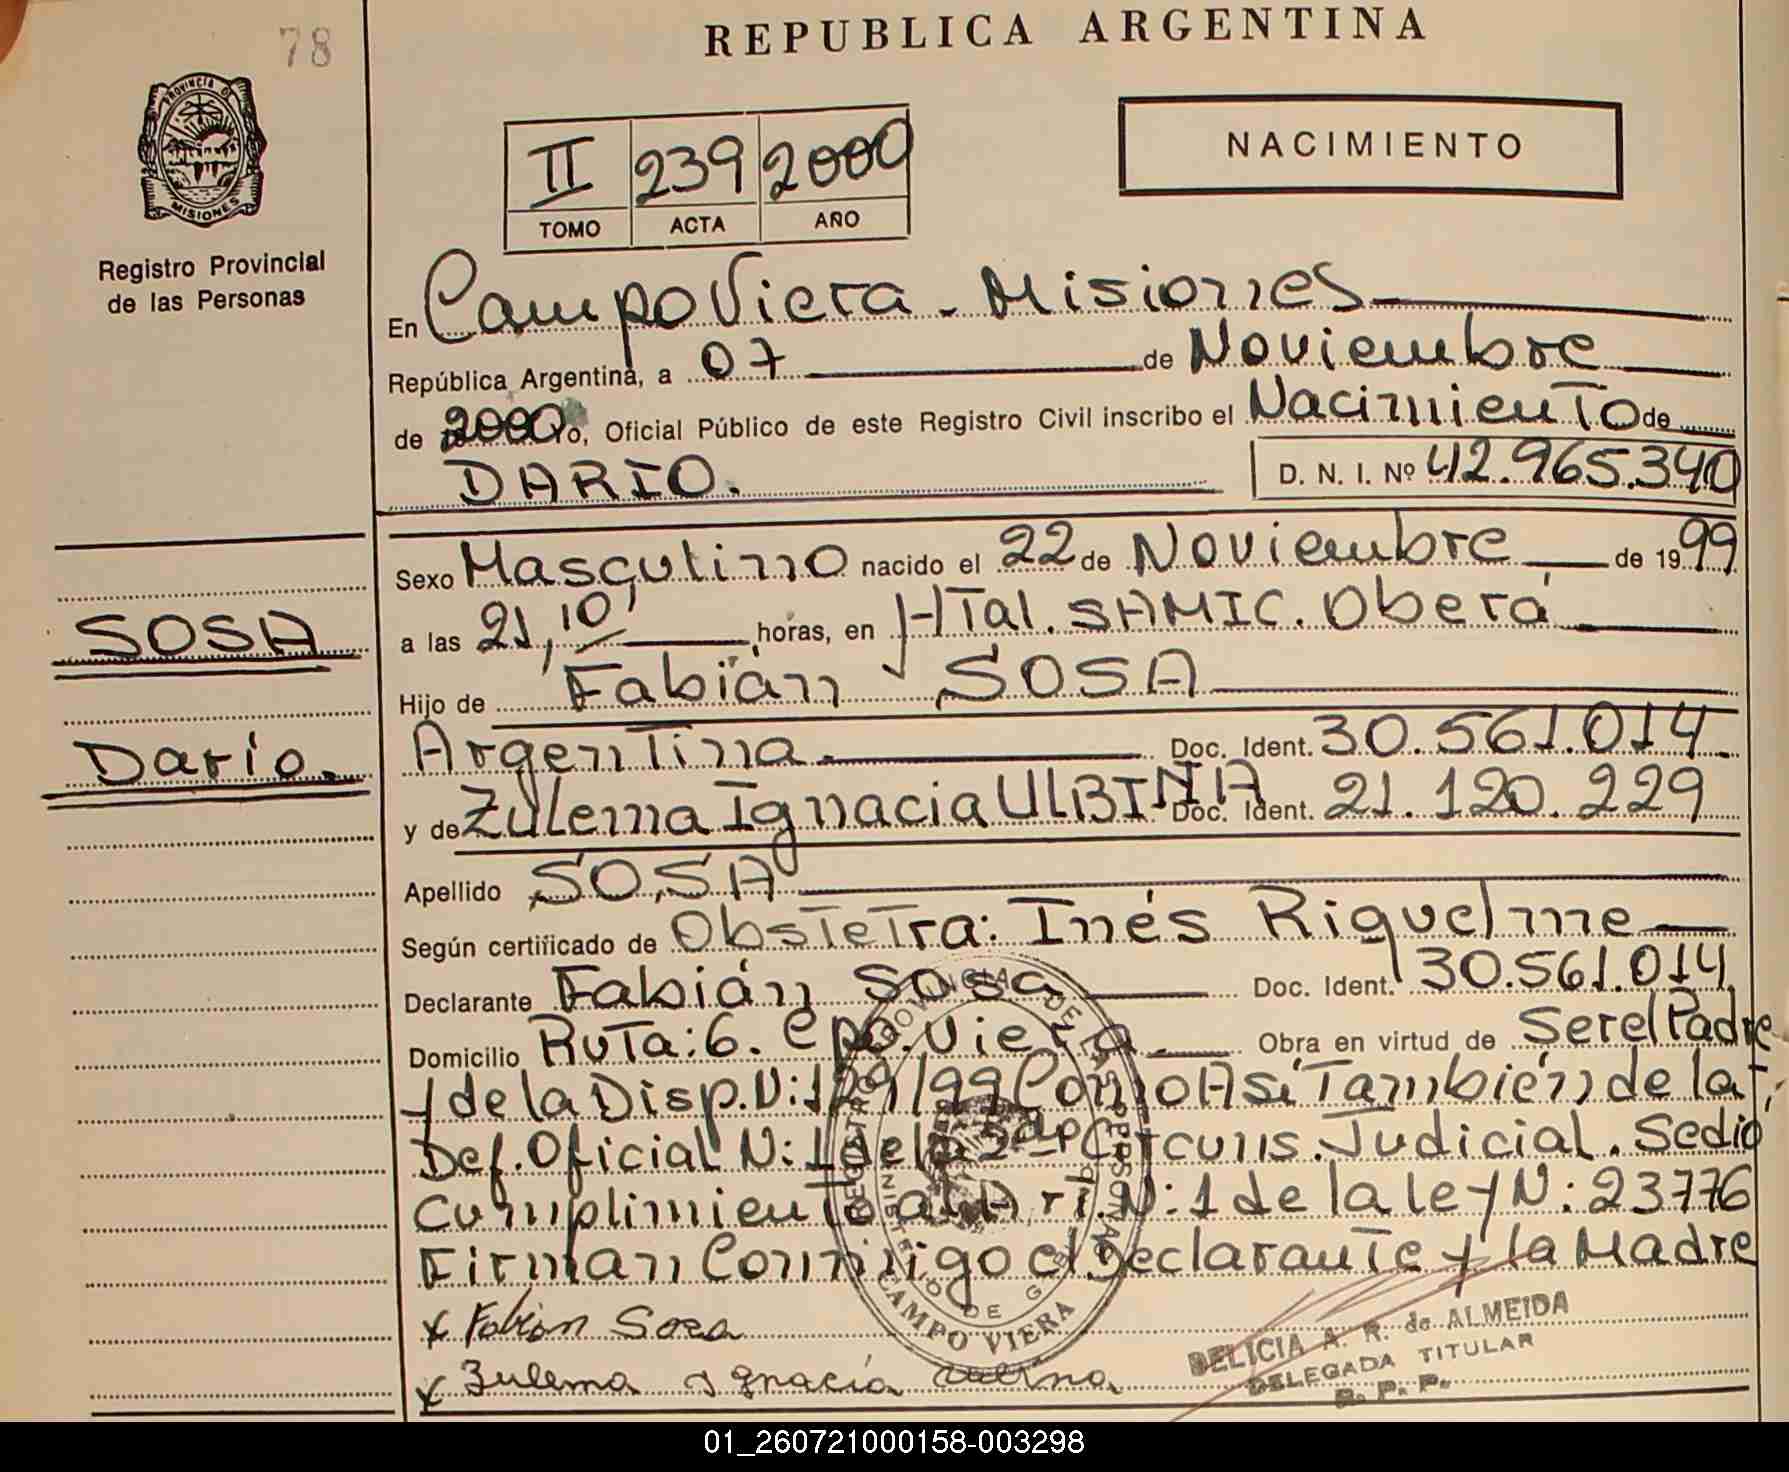 78
REPUBLICA ARGENTINA
PROVINCIA DE
MISIONES
Registro Provincial
de las Personas
NACIMIENTO
II 239 2000
TOMO ACTA AÑO
En Campo Viera - Misiones
República Argentina, a 07 de Noviembre
de 2000 yo, Oficial Público de este Registro Civil inscribo el Nacimiento de
DARIO. D. N. I. Nº 42.965.340
Sexo Masculino nacido el 22 de Noviembre de 1999
a las 21,10' horas, en HTal. SAMIC. Oberá
Hijo de Fabián SOSA
Argentina. Doc. Ident. 30.561.014
y de Zulema Ignacia ULBINA Doc. Ident. 21.120.229
Apellido SOSA
Según certificado de Obstetra: Inés Riquelme
Declarante Fabián Sosa Doc. Ident. 30.561.014
Domicilio Ruta: 6. Cpo. Viera Obra en virtud de Ser el Padre
y de la Disp. N: 129/99 Como Así También de la
Def. Oficial N: 1 de la 2da Circuns. Judicial. Se dió
Cumplimiento al Art. N: 1 de la ley N: 23776
Firman Conmigo el Declarante y la Madre
x Fabian Sosa
x Zulema Ignacia Ulbina
SOSA
Dario.
CAMPO VIERA
DELICIA A. R. de ALMEIDA
DELEGADA TITULAR
R. P. P.
01_260721000158-003298